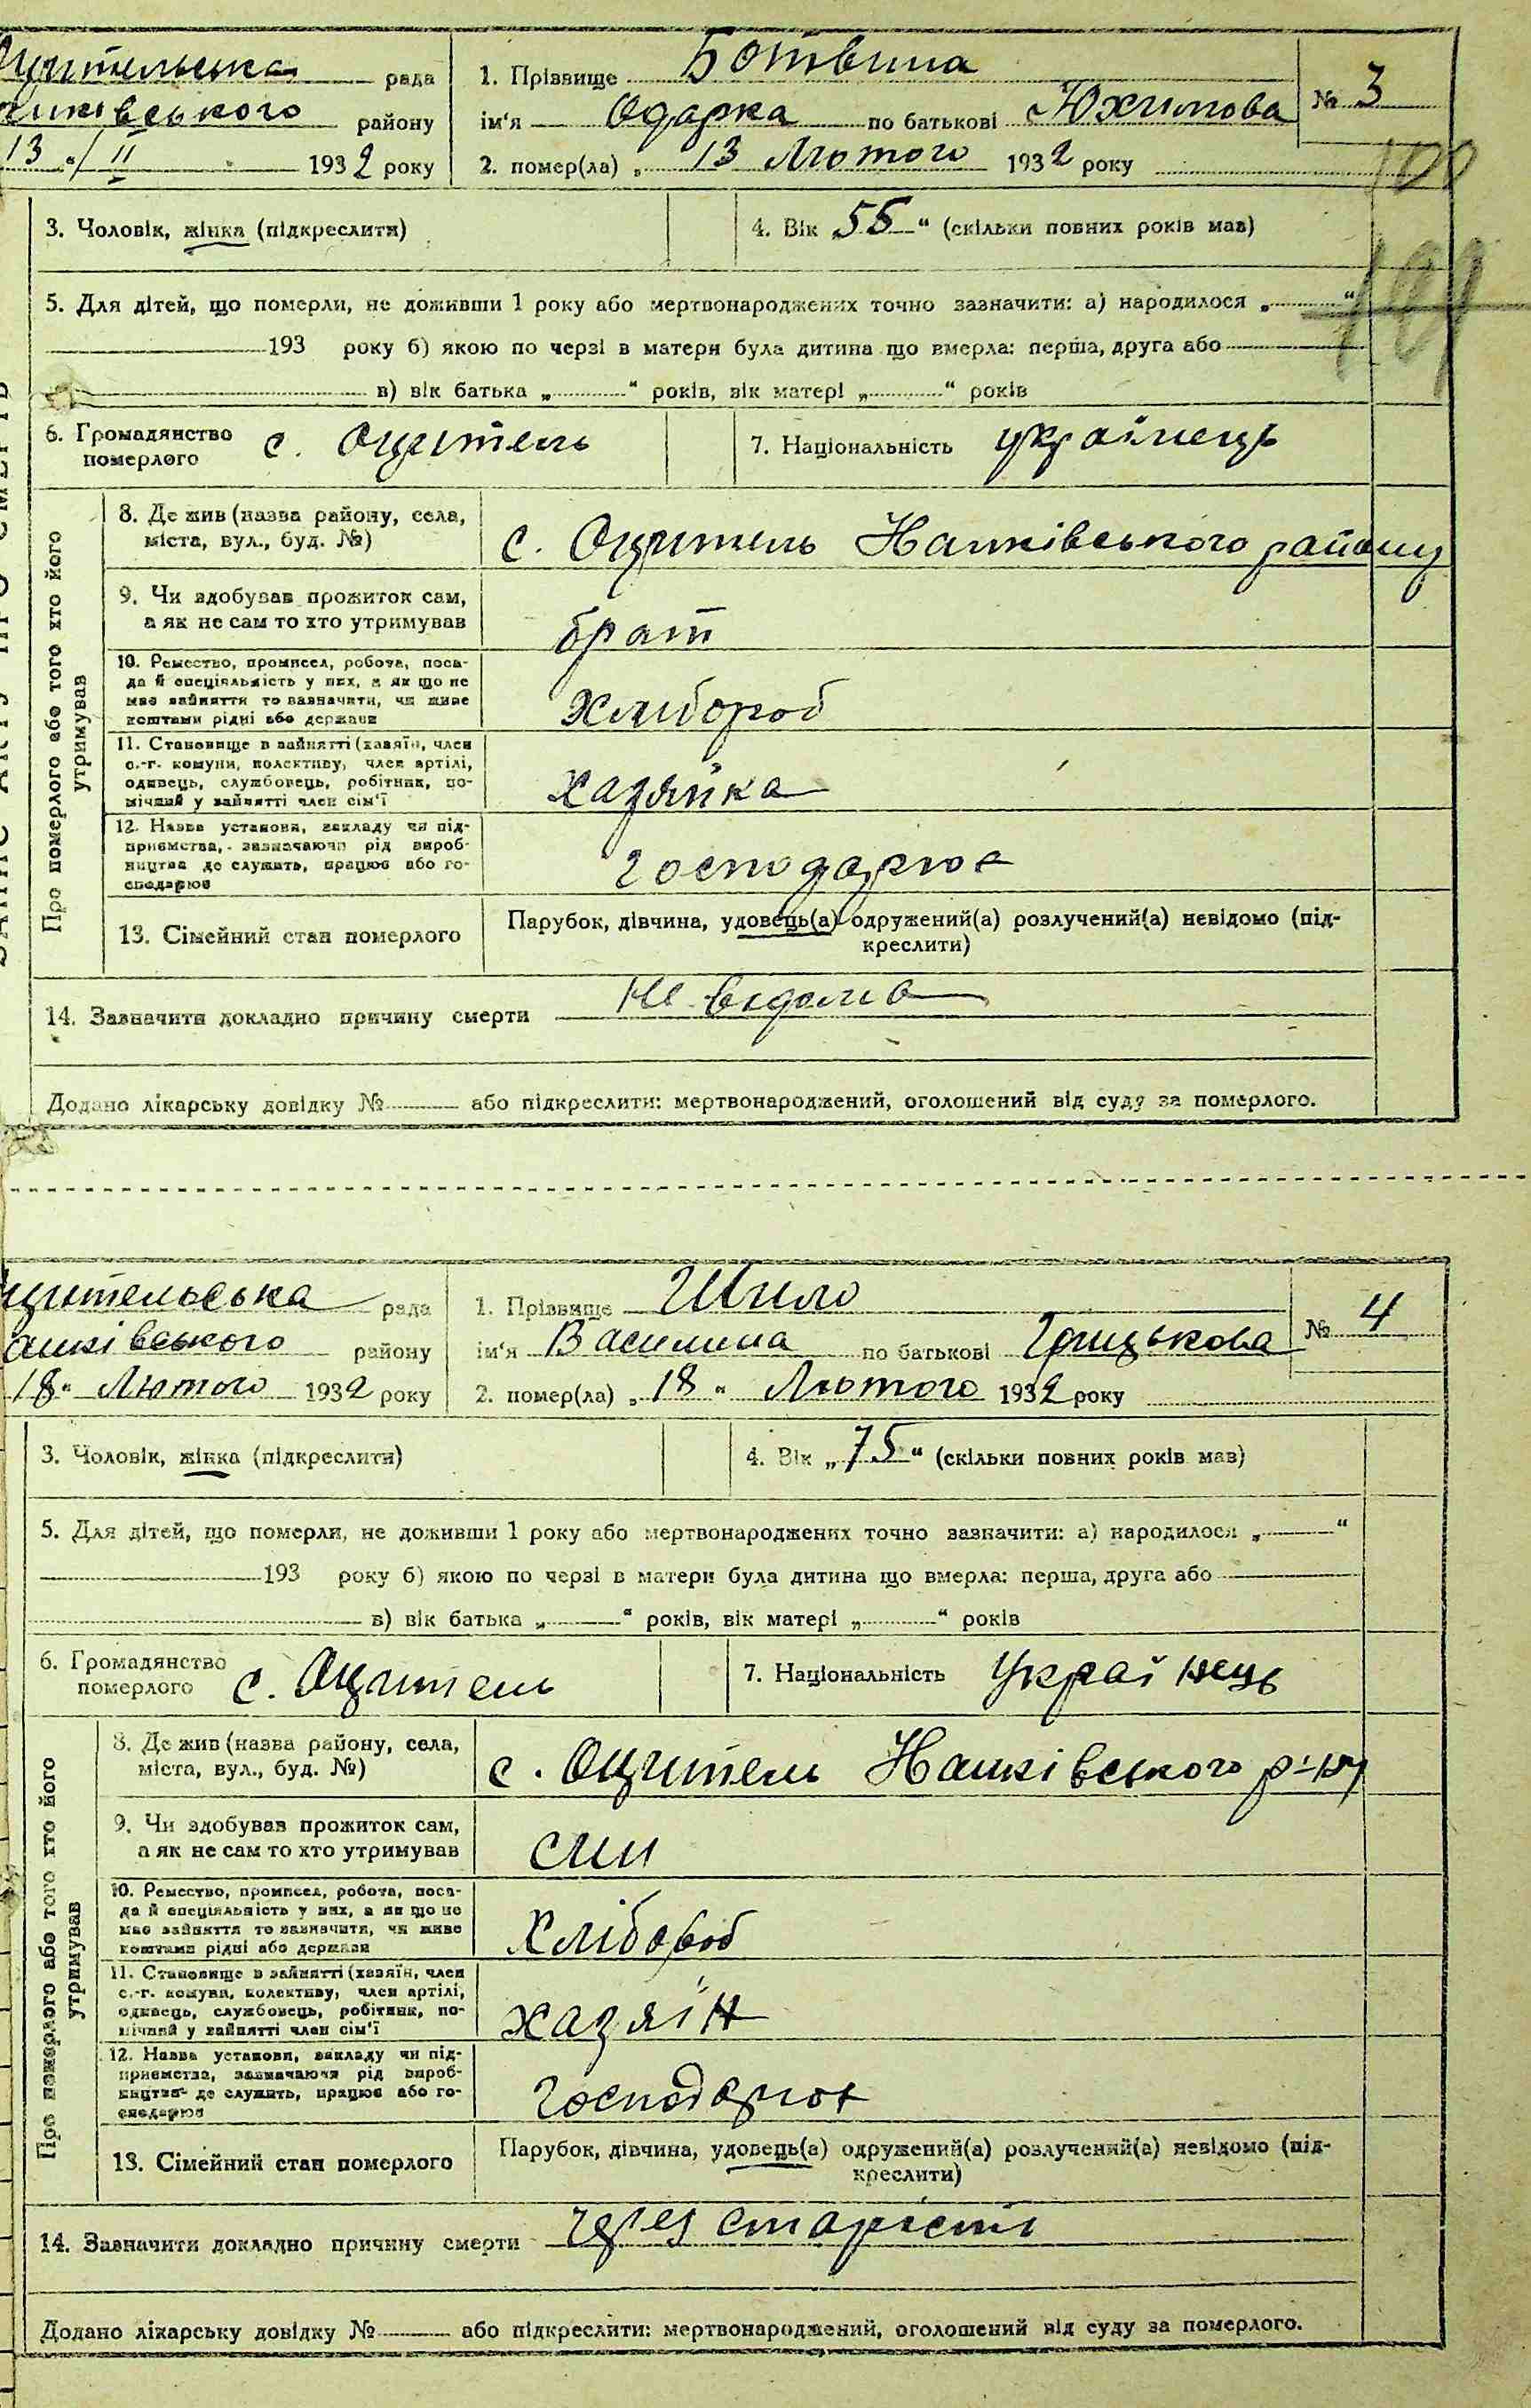 цительська рада
1. Прізвище Ботвина
№ 3
районy
ім'я Одарка по батькові Юхимова
13 " II 1932 року
2. помер(ла) „ 13 Лютого 1932 року
3. Чоловік, жінка (підкреслити)
4. Вік „55" (скільки повних років мав)
5. Для дітей, що померли, не доживши 1 року або мертвонароджених точно зазначити: а) народилося „ "
193 року б) якою по черзі в матери була дитина що вмерла: перша, друга або
в) вік батька „ " років, вік матері „ " років
6. Громадянство померлого с. Оцитель
7. Національність українець
Про померлого або того хто його утримував
8. Де жив (назва району, села,
міста, вул., буд. №)
с. Оцитель Народ
9. Чи здобував прожиток сам,
а як не сам то хто утримував
брат
10. Ремество, промисел, робота, поса-
да й спеціяльність у них, а як що не
має зайняття то зазначити, чи живе
коштами рідні або держави
Хлібороб
11. Становище в зайнятті (хазяїн, член
с.-г. комуни, колективу, член артілі,
одинець, службовець, робітник, по-
мічний у зайнятті член сім'ї
хазяйка
12. Назва установи, закладу чи під-
приємства, зазначаючи рід вироб-
ництва де служить, працює або го-
сподарює
господарює
13. Сімейний стан померлого
Парубок, дівчина, удовець(а) одружений(а) розлучений(а) невідомо (під-
креслити)
14. Зазначити докладно причину смерти не відомо
Додано лікарську довідку № або підкреслити: мертвонароджений, оголошений від суду за померлого.
цительська рада
1. Прізвище Шило
№ 4
району
ім'я Василина по батькові Грицькова
18" Лютого 1932 року
2. помер(ла) „ 18 " Лютого 1932 року
3. Чоловік, жінка (підкреслити)
4. Вік „75" (скільки повних років мав)
5. Для дітей, що померли, не доживши 1 року або мертвонароджених точно зазначити: а) народилося „ "
193 року б) якою по черзі в матери була дитина що вмерла: перша, друга або
в) вік батька „ " років, вік матері „ " років
6. Громадянство померлого с. Оцитель
7. Національність Українець
Про померлого або того хто його утримував
8. Де жив (назва району, села,
міста, вул., буд. №)
с. Оцитель р-ну
9. Чи здобував прожиток сам,
а як не сам то хто утримував
син
10. Ремество, промисел, робота, поса-
да й спеціяльність у них, а як що не
має зайняття то зазначити, чи живе
коштами рідні або держави
Хлібороб
11. Становище в зайнятті (хазяїн, член
с.-г. комуни, колективу, член артілі,
одинець, службовець, робітник, по-
мічний у зайнятті член сім'ї
хазяїн
12. Назва установи, закладу чи під-
приємства, зазначаючи рід вироб-
ництва де служить, працює або го-
сподарює
господарює
13. Сімейний стан померлого
Парубок, дівчина, удовець(а) одружений(а) розлучений(а) невідомо (під-
креслити)
14. Зазначити докладно причину смерти через старість
Додано лікарську довідку № або підкреслити: мертвонароджений, оголошений від суду за померлого.